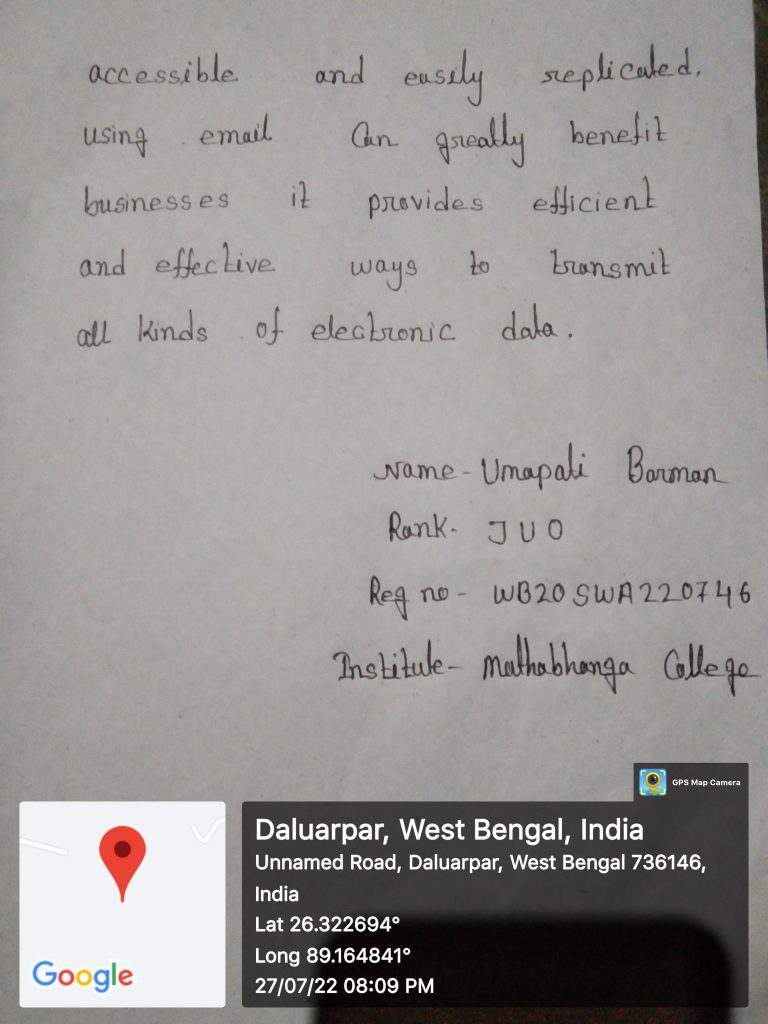 accessible and easily replicated.
using email Can greatly benefit
businesses it provides efficient
and effective ways to transmit
all kinds of electronic data.
Name - Umapati Barman
Rank - JUO
Reg no - WB20SWA220746
Institute - Mathabhanga College
GPS Map Camera
Daluarpar, West Bengal, India
Unnamed Road, Daluarpar, West Bengal 736146,
India
Lat 26.322694°
Long 89.164841°
27/07/22 08:09 PM
Google